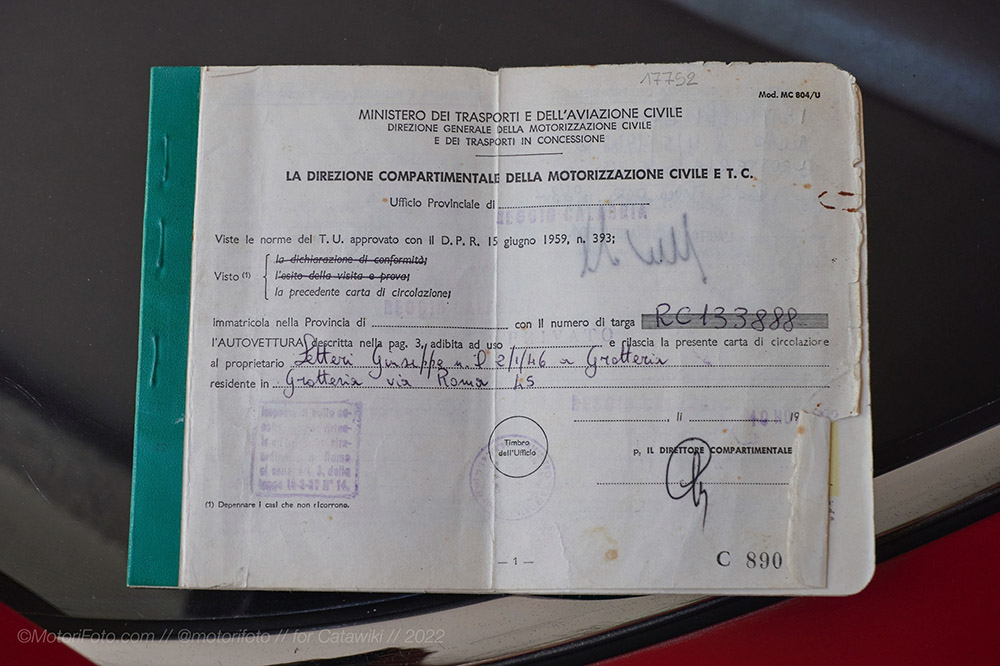 17792
Mod. MC 804/U
MINISTERO DEI TRASPORTI E DELL'AVIAZIONE CIVILE
DIREZIONE GENERALE DELLA MOTORIZZAZIONE CIVILE
E DEI TRASPORTI IN CONCESSIONE
LA DIREZIONE COMPARTIMENTALE DELLA MOTORIZZAZIONE CIVILE E T. C.
Ufficio Provinciale di
REGGIO CALABRIA
Viste le norme del T. U. approvato con il D. P. R. 15 giugno 1959, n. 393;
Visto (1)
la dichiarazione di conformità;
l'esito della visita e prova;
la precedente carta di circolazione;
immatricola nella Provincia di con il numero di targa RC133888
l'AUTOVETTURA descritta nella pag. 3, adibita ad uso e rilascia la presente carta di circolazione
al proprietario Letteri Giuseppe n. il 2/1/46 a Grotteria
residente in Grotteria via Roma 45
, li 19
Timbro
dell'Ufficio
p. IL DIRETTORE COMPARTIMENTALE
(1) Depennare i casi che non ricorrono.
— 1 —
C 890
©MotoriFoto.com // @motorifoto // for Catawiki // 2022